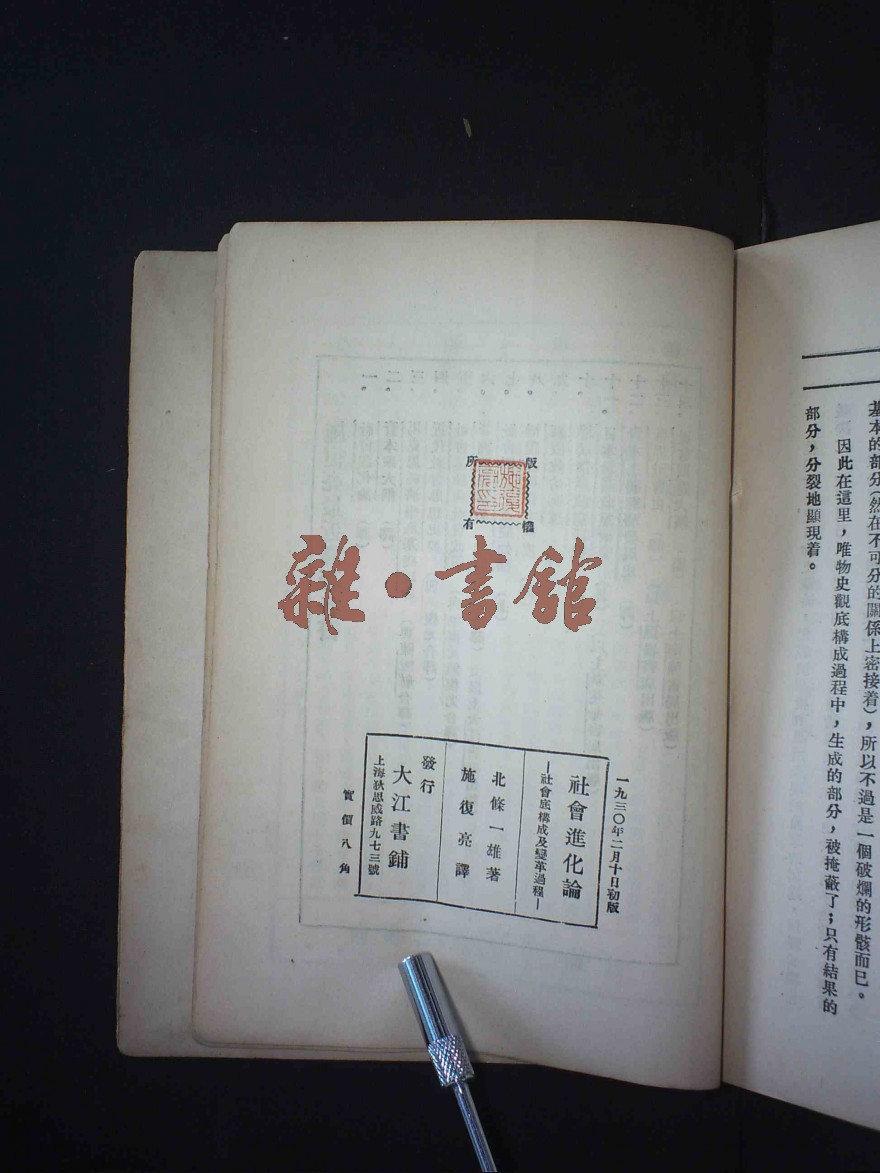 基本的部分(然在不可分的關係上密接着),所以不過是一個破爛的形骸而已。
因此在這里,唯物史觀底構成過程中,生成的部分,被掩蔽了;只有結果的
部分,分裂地顯現着。
版權
所有
雜·書館
一九三〇年二月十日初版
社會進化論
—社會底構成及變革過程—
北條一雄著
施復亮譯
發行
大江書鋪
上海狄思威路九七三號
實價八角